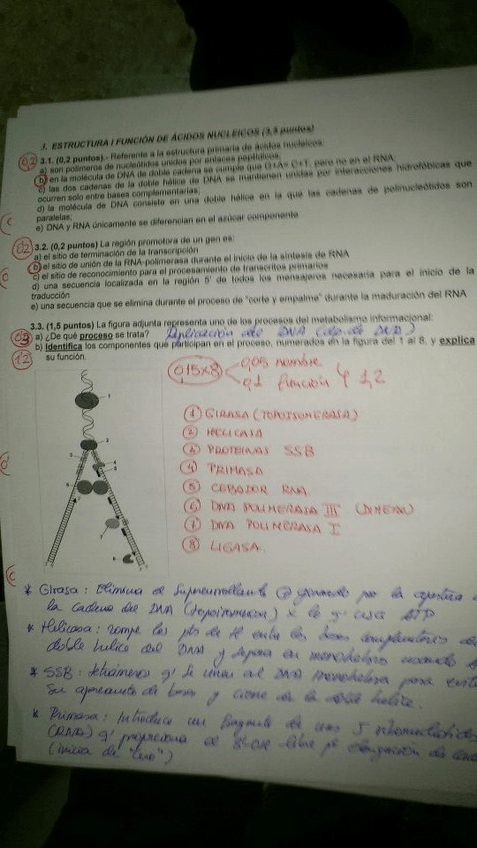 3. ESTRUCTURA I FUNCIÓN DE ÁCIDOS NUCLEICOS (3,3 puntos)
0,2 3.1. (0,2 puntos).- Referente a la estructura primaria de ácidos nucleicos:
a) son polímeros de nucleótidos unidos por enlaces peptídicos
b) en la molécula de DNA de doble cadena se cumple que G+A= C+T, pero no en el RNA
c) las dos cadenas de la doble hélice de DNA se mantienen unidas por interacciones hidrofóbicas que
ocurren solo entre bases complementarias;
d) la molécula de DNA consiste en una doble hélice en la que las cadenas de polinucleótidos son
paralelas;
e) DNA y RNA únicamente se diferencian en el azúcar componente
0,2 3.2. (0,2 puntos) La región promotora de un gen es:
a) el sitio de terminación de la transcripción
b) el sitio de unión de la RNA-polimerasa durante el inicio de la síntesis de RNA
c) el sitio de reconocimiento para el procesamiento de transcritos primarios
d) una secuencia localizada en la región 5' de todos los mensajeros necesaria para el inicio de la
traducción
e) una secuencia que se elimina durante el proceso de "corte y empalme" durante la maduración del RNA
3.3. (1,5 puntos) La figura adjunta representa uno de los procesos del metabolismo informacional:
0,3 a) ¿De qué proceso se trata? Replicación del DNA
1,2 b) Identifica los componentes que participan en el proceso, numerados en la figura del 1 al 8, y explica
su función.
0,15x8 0,05 nombre
0,1 función 1,2
1 GIRASA (TOPOISOMERASA)
2 HELICASA
3 PROTEINAS SSB
4 PRIMASA
5 CEBADOR RNA
6 DNA POLIMERASA III (DIMERO)
7 DNA POLIMERASA I
8 LIGASA
* Girasa: Elimina el Superenrollamiento generado por la apertura
la cadena del DNA (topoisomerasa) x lo q' usa ATP
* Helicasa: rompe los pts de H entre las bases complementarias
doble helice del DNA y separa en monohebras
* SSB: tetrámeros q' se unen al DNA monohebra para
Su apareamto de bases y cierre de la doble helice.
* Primasa: Introduce un fragmento de unos 5 ribonucleótidos
(RNA) q' proporciona el 3'-OH libre pª elongación
(inicia de "cero")